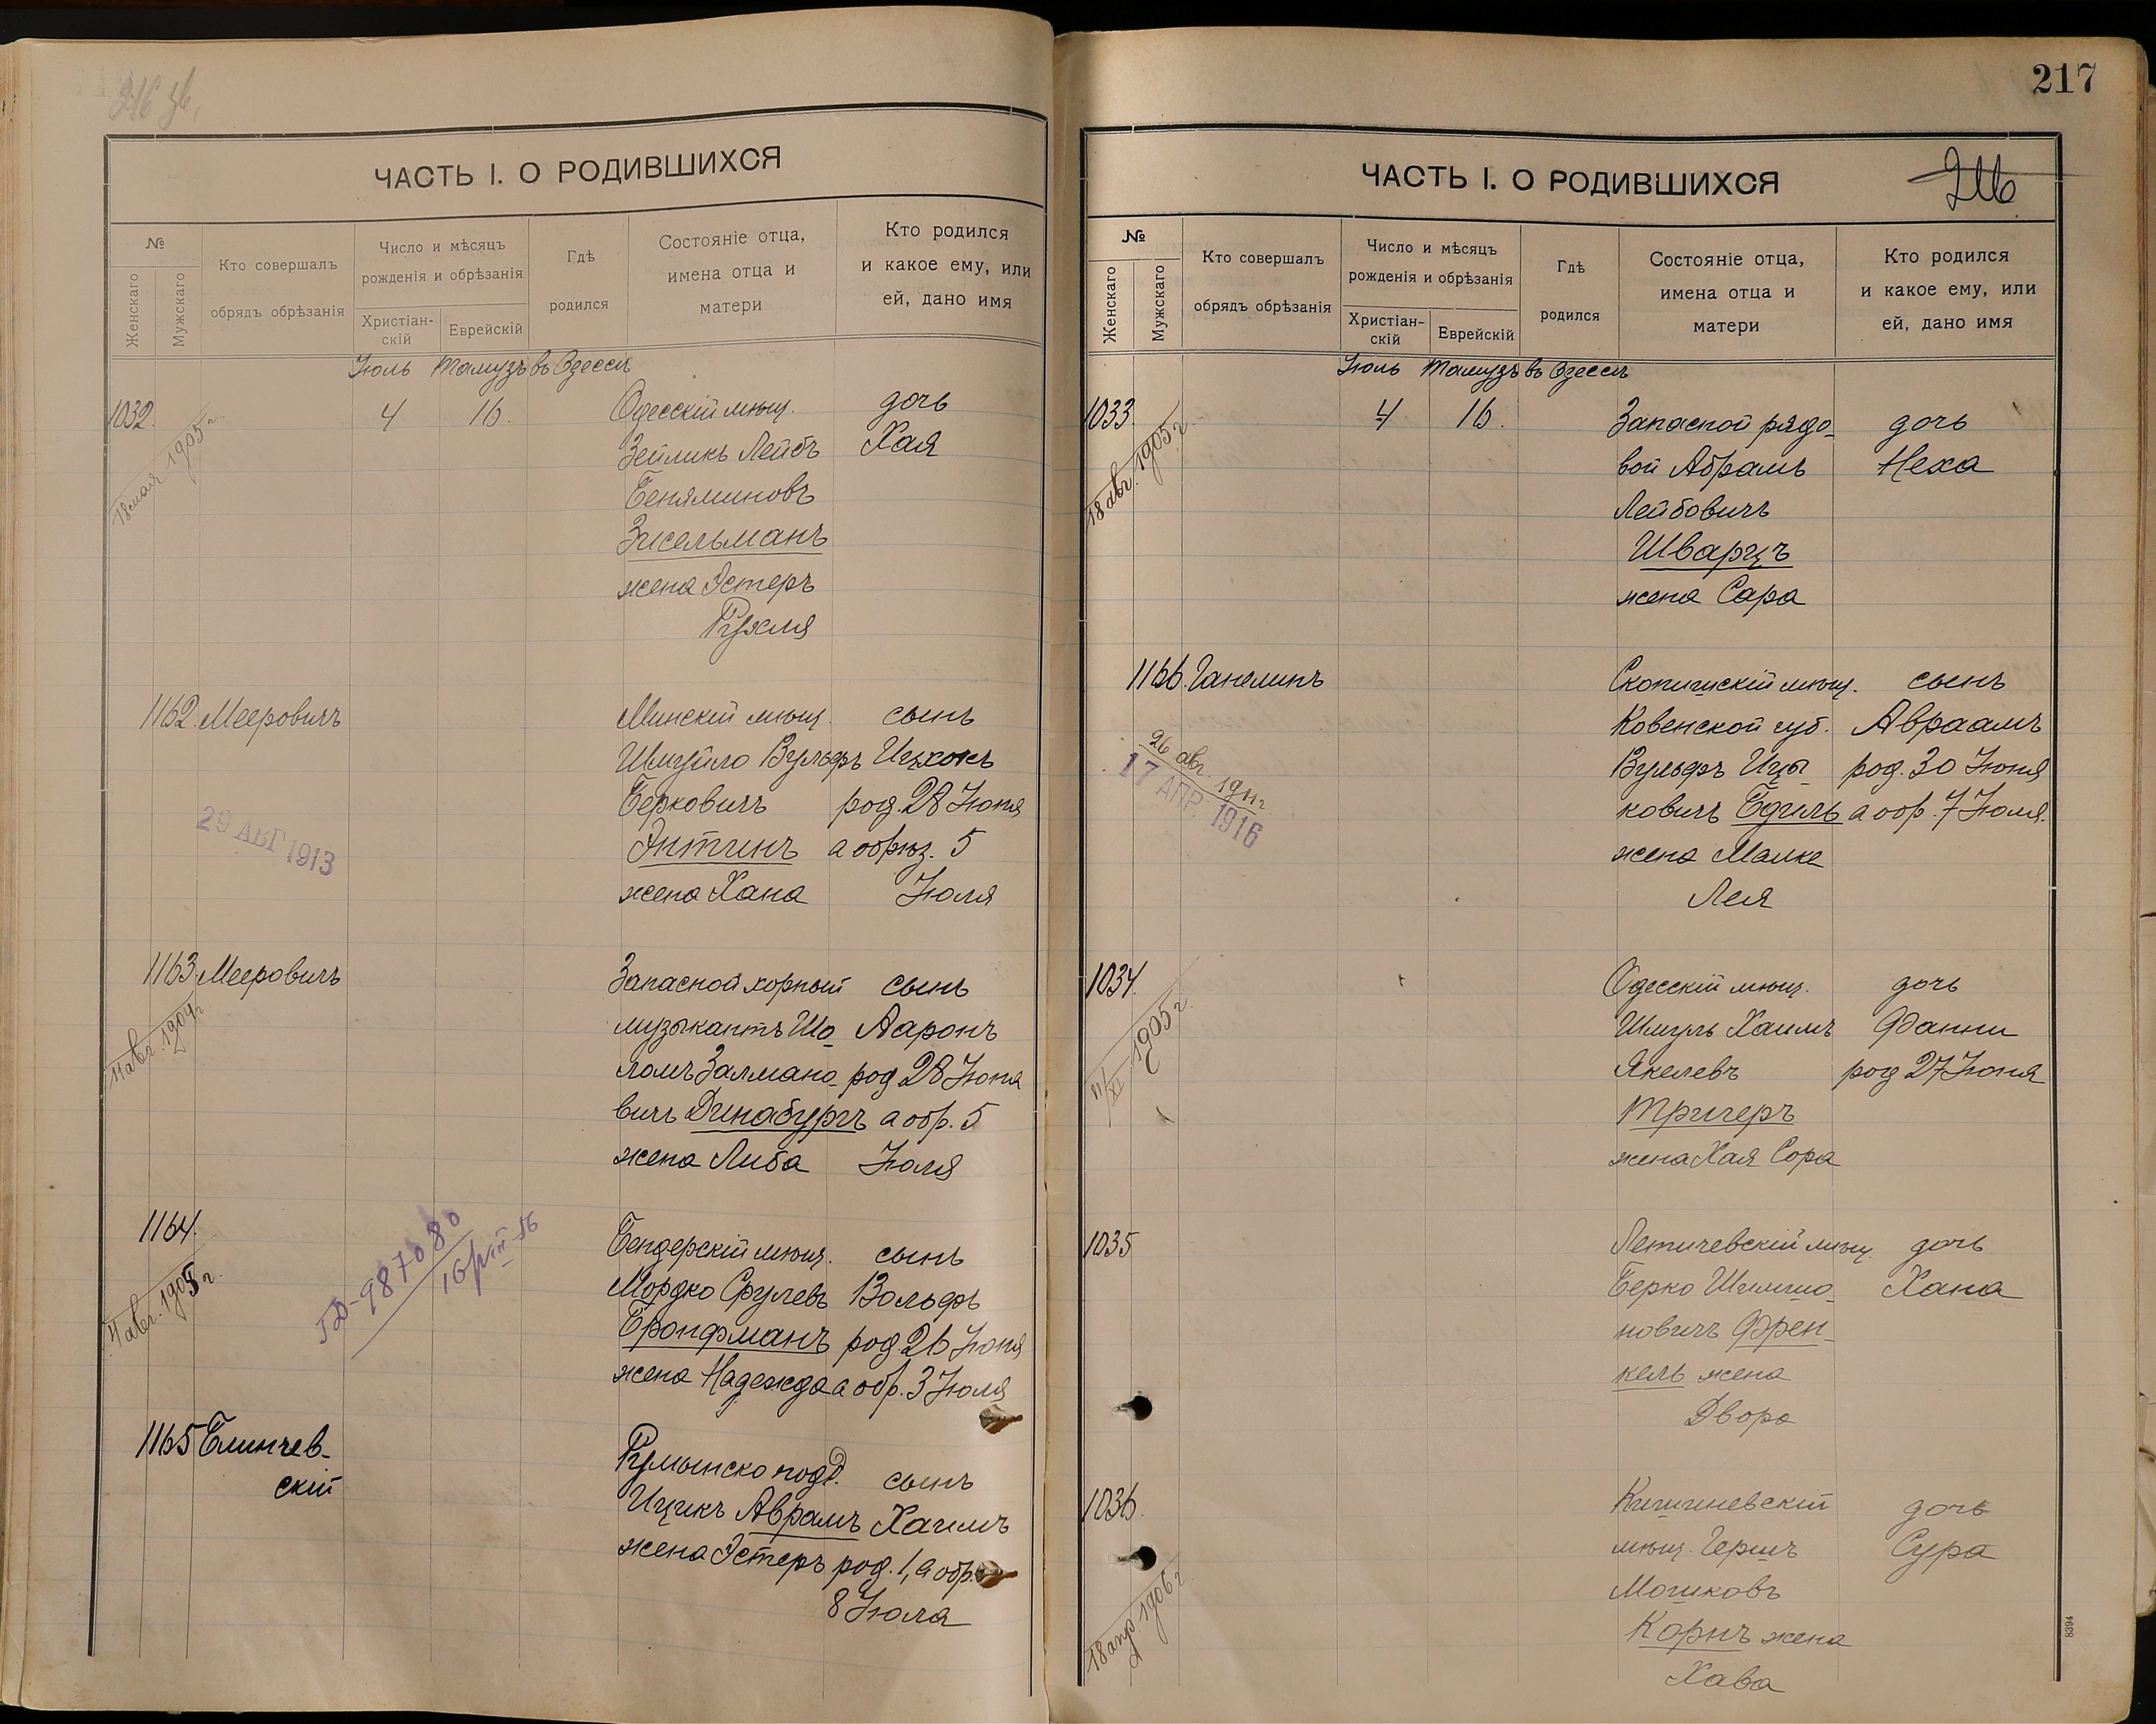 216 зв.
ЧАСТЬ I. О РОДИВШИХСЯ
№
Женскаго
Мужскаго
Кто совершалъ
обрядъ обрѣзанія
Число и мѣсяцъ
рожденія и обрѣзанія
Христіан-
скій
Еврейскій
Гдѣ
родился
Состояніе отца,
имена отца и
матери
Кто родился
и какое ему, или
ей, дано имя
Іюль Тамузъ въ Одессѣ
1032. 4 16. Одесскій мѣщ. дочь
Зейликъ Лейбъ Хая
Беняминовъ
Зисельманъ
жена Эстеръ
Рухля
18 мая 1905 г.
1162. Мееровичъ Минскій мѣщ. сынъ
Шмуйло Вульфъ Ицхокъ
Берковичъ род. 28 Іюня
Энтинъ а обрѣз. 5
жена Хана Іюля
29 АВГ 1913
1163. Мееровичъ Запасной хорный сынъ
музыкантъ Шо- Ааронъ
ломъ Залмано- род 28 Іюня
вичъ Динабургъ а обр. 5
жена Либа Іюля
11 авг. 1904 г.
1164. Бендерскій мѣщ. сынъ
Мордко Срулевъ Вольфъ
Бронфманъ род 26 Іюня
жена Надежда а обр. 3 Іюля
11 авг. 1905 г.
1165 Блинчев-
скій
Румынско подд. сынъ
Ицикъ Аврамъ Хаимъ
жена Эстеръ род. 1, а обр.
8 Іюля
217
216
ЧАСТЬ I. О РОДИВШИХСЯ
№
Женскаго
Мужскаго
Кто совершалъ
обрядъ обрѣзанія
Число и мѣсяцъ
рожденія и обрѣзанія
Христіан-
скій
Еврейскій
Гдѣ
родился
Состояніе отца,
имена отца и
матери
Кто родился
и какое ему, или
ей, дано имя
Іюль Тамузъ въ Одессѣ
1033. 4 16. Запасной рядо- дочь
вой Абрамъ Неха
Лейбовичъ
Шварцъ
жена Сара
18 авг. 1905 г.
1166. Ганелинъ Скопишскій мѣщ. сынъ
Ковенской губ. Авраамъ
Вульфъ Ицы- род. 30 Іюня
ковичъ Едиль а обр. 7 Іюля.
жена Малке
Лея
26 авг. 1911 г
17 АПР. 1916
1034. Одесскій мѣщ. дочь
Шмуль Хаимъ Фанни
Якелевъ род 27 Іюня
Тригеръ
жена Хая Сора
11/XI 1905 г.
1035 Летичевскій мѣщ. дочь
Берко Шимшо- Хана
новичъ Френ-
кель жена
Двора
1036. Кишиневскій дочь
мѣщ. Гершъ Сура
Мошковъ
Корнъ жена
Хава
18 апр 1906 г.
8394